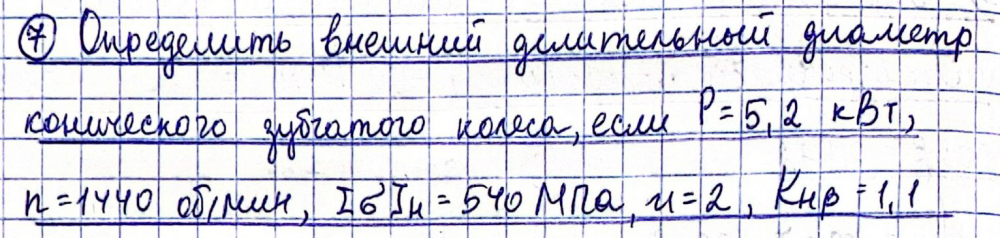 ⑦ Определить внешний делительный диаметр
конического зубчатого колеса, если P=5,2 кВт,
n=1440 об/мин, [σ]н=540 МПа, u=2, Kнβ=1,1